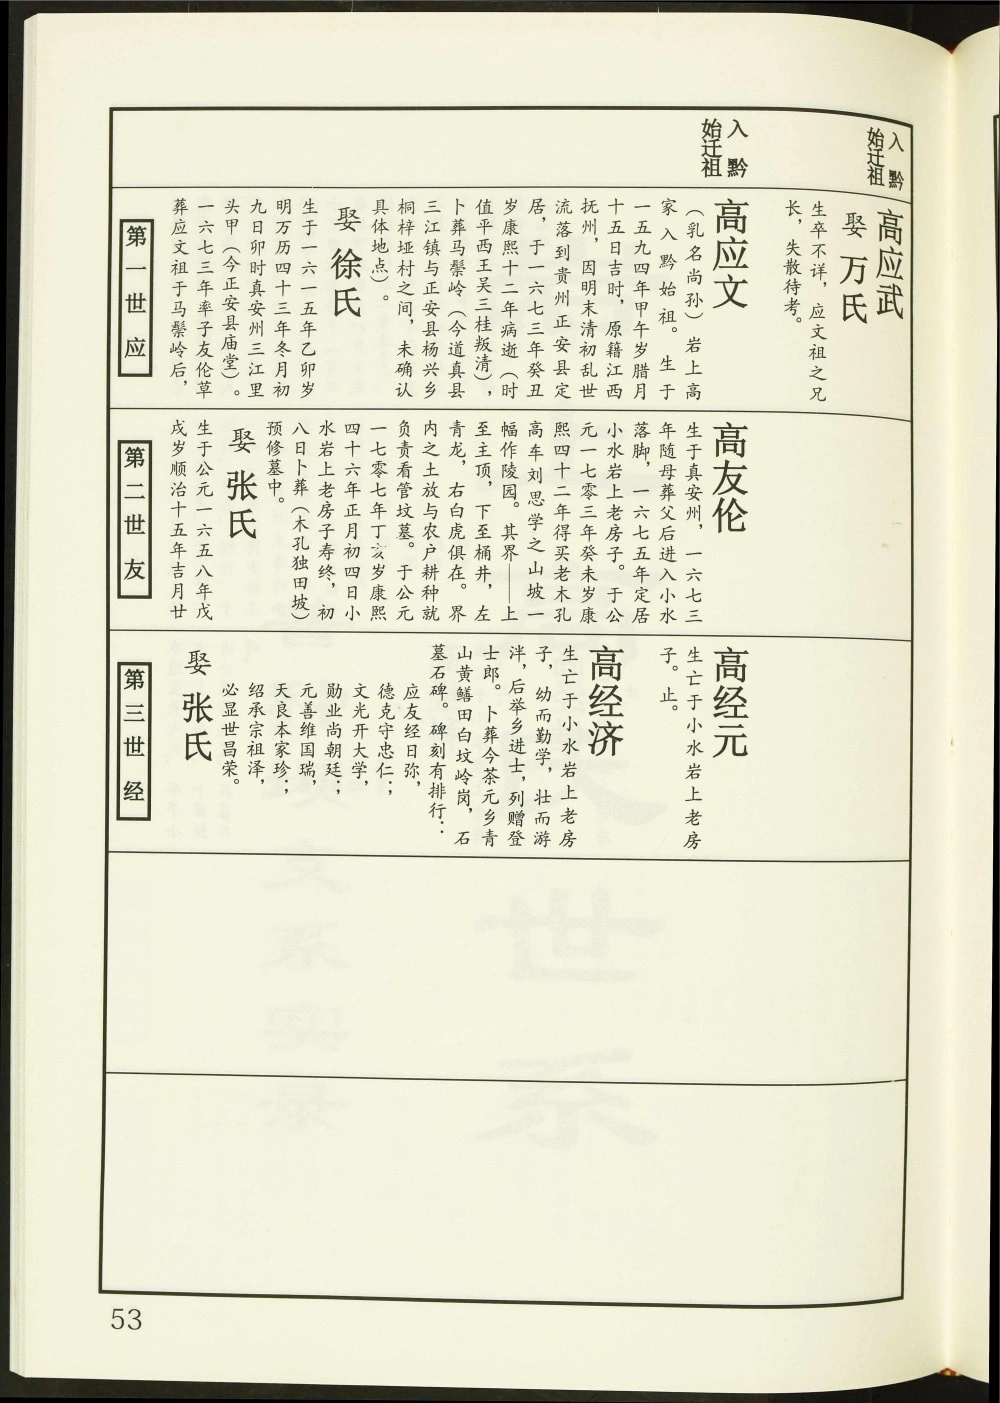 入黔
始迁祖
高应武
娶 万氏
生卒不详，应文祖之兄
长，失散待考。
入黔
始迁祖
高应文
（乳名尚孙）岩上高
家入黔始祖。生于
一五九四年甲午岁腊月
十五日吉时，原籍江西
抚州，因明末清初乱世
流落到贵州正安县定
居，于一六七三年癸丑
岁康熙十二年病逝（时
值平西王吴三桂叛清），
卜葬马鬃岭（今道真县
三江镇与正安县杨兴乡
桐梓垭村之间，未确认
具体地点）。
娶 徐氏
生于一六一五年乙卯岁
明万历四十三年冬月初
九日卯时真安州三江里
头甲（今正安县庙堂）。
一六七三年率子友伦草
葬应文祖于马鬃岭后，
第一世 应
高友伦
生于真安州，一六七三
年随母葬父后进入小水
落脚，一六七五年定居
小水岩上老房子。于公
元一七零三年癸未岁康
熙四十二年得买老木孔
高车刘思学之山坡一
幅作陵园。其界——上
至主顶，下至桶井，左
青龙，右白虎俱在。界
内之土放与农户耕种就
负责看管坟墓。于公元
一七零七年丁亥岁康熙
四十六年正月初四日小
水岩上老房子寿终，初
八日卜葬（木孔独田坡）
预修墓中。
娶 张氏
生于公元一六五八年戊
戌岁顺治十五年吉月廿
第二世 友
高经元
生亡于小水岩上老房
子。止。
高经济
生亡于小水岩上老房
子，幼而勤学，壮而游
泮，后举乡进士，列赠登
士郎。卜葬今茶元乡青
山黄鳝田白坟岭岗，石
墓石碑。碑刻有排行：
应友经日弥，
德克守忠仁；
文光开大学，
勋业尚朝廷；
元善维国瑞，
天良本家珍；
绍承宗祖泽，
必显世昌荣。
娶 张氏
第三世 经
53